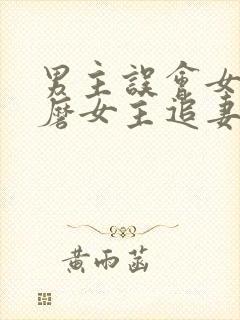 男主誤會女
磨女主追妻
黃雨菡